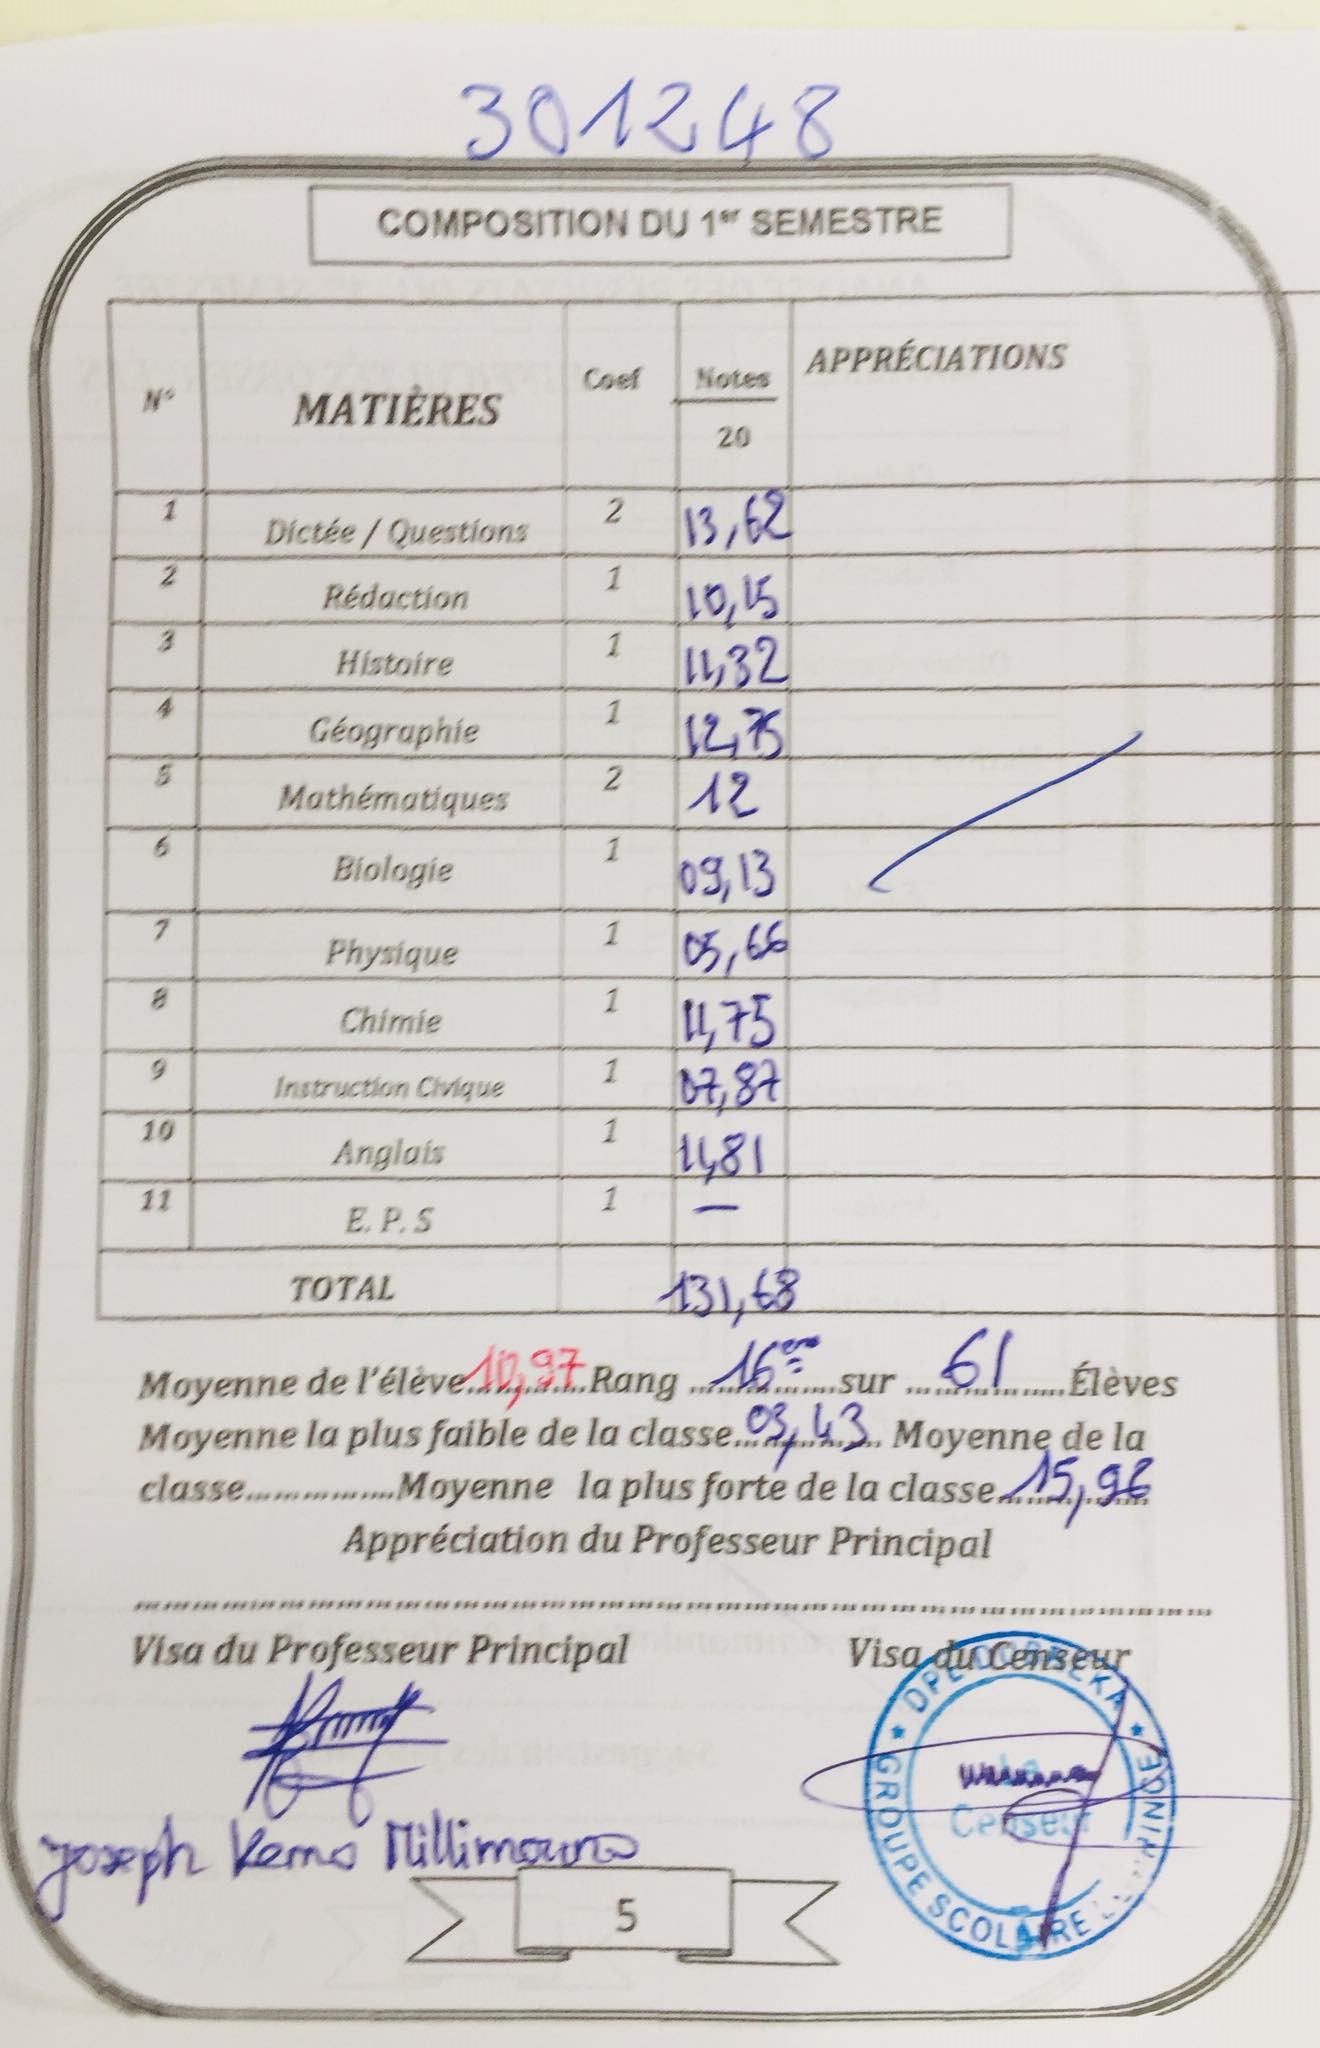 301248
COMPOSITION DU 1er SEMESTRE
N° MATIÈRES Coef Notes APPRÉCIATIONS
20
1 Dictée / Questions 2 13,62
2 Rédaction 1 10,15
3 Histoire 1 11,32
4 Géographie 1 12,75
5 Mathématiques 2 12
6 Biologie 1 09,13
7 Physique 1 05,66
8 Chimie 1 11,75
9 Instruction Civique 1 07,87
10 Anglais 1 11,81
11 E. P. S 1 —
TOTAL 131,68
Moyenne de l'élève 10,97 Rang 16ème sur 61 Élèves
Moyenne la plus faible de la classe 03,43 Moyenne de la
classe...............Moyenne la plus forte de la classe 15,96
Appréciation du Professeur Principal
Visa du Professeur Principal Visa du Censeur
DPE DUBREKA
Censeur
GROUPE SCOLAIRE
Joseph Kemo Millimouno
5